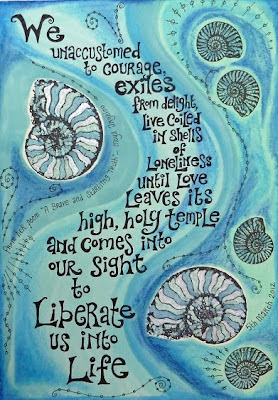 We
unaccustomed
to courage,
exiles
from delight,
live coiled
in shells
of
loneliness
until Love
Leaves its
high, holy temple
and comes into
our sight
to
Liberate
us into
Life
from her poem "A Brave and Startling
5th March 2012